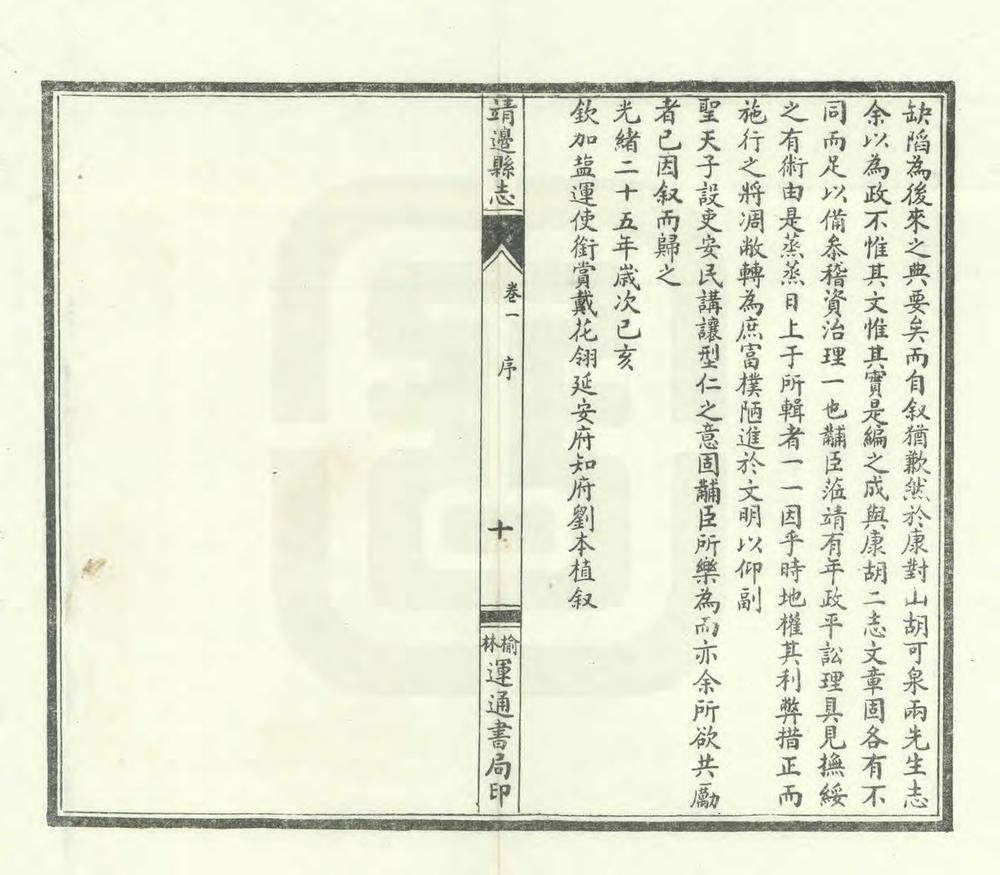 缺陷為後來之典要矣而自叙猶歉然於康對山胡可泉兩先生志
余以為政不惟其文惟其實是編之成與康胡二志文章固各有不
同而足以備叅稽資治理一也黼臣蒞靖有年政平訟理具見撫綏
之有術由是蒸蒸日上于所輯者一一因乎時地權其利弊措正而
施行之將凋敝轉為庶富樸陋進於文明以仰副
聖天子設吏安民講讓型仁之意固黼臣所樂為而亦余所欲共勵
者已因叙而歸之
光緒二十五年嵗次己亥
欽加盐運使銜賞戴花翎延安府知府劉本植叙
靖邊縣志
卷一 序
十
榆林運通書局印